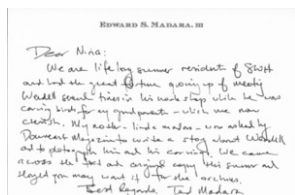 EDWARD S. MADARA, III
Dear Nina:
We are life long summer resident of SWH
and had the great fortune growing up of meeting
Wendell several times in his work shop while he was
carving birds for my grandparents - which we now
cherish. My mother - linda madara - was asked by
Downeast Magazine to write a story about Wendell
and to photograph him and his carving. We came
across the and original copy this summer and
thought you may want it for the archives.
Best Regards, Ted Madara